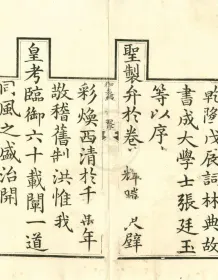 乾隆戊辰詞林典故
書成大學士張廷玉
等以序
聖製弁於卷尺璧
彩煥西清於千年
敬稽舊制洪惟我
皇考臨御六十載闡一道
同風之盛治開